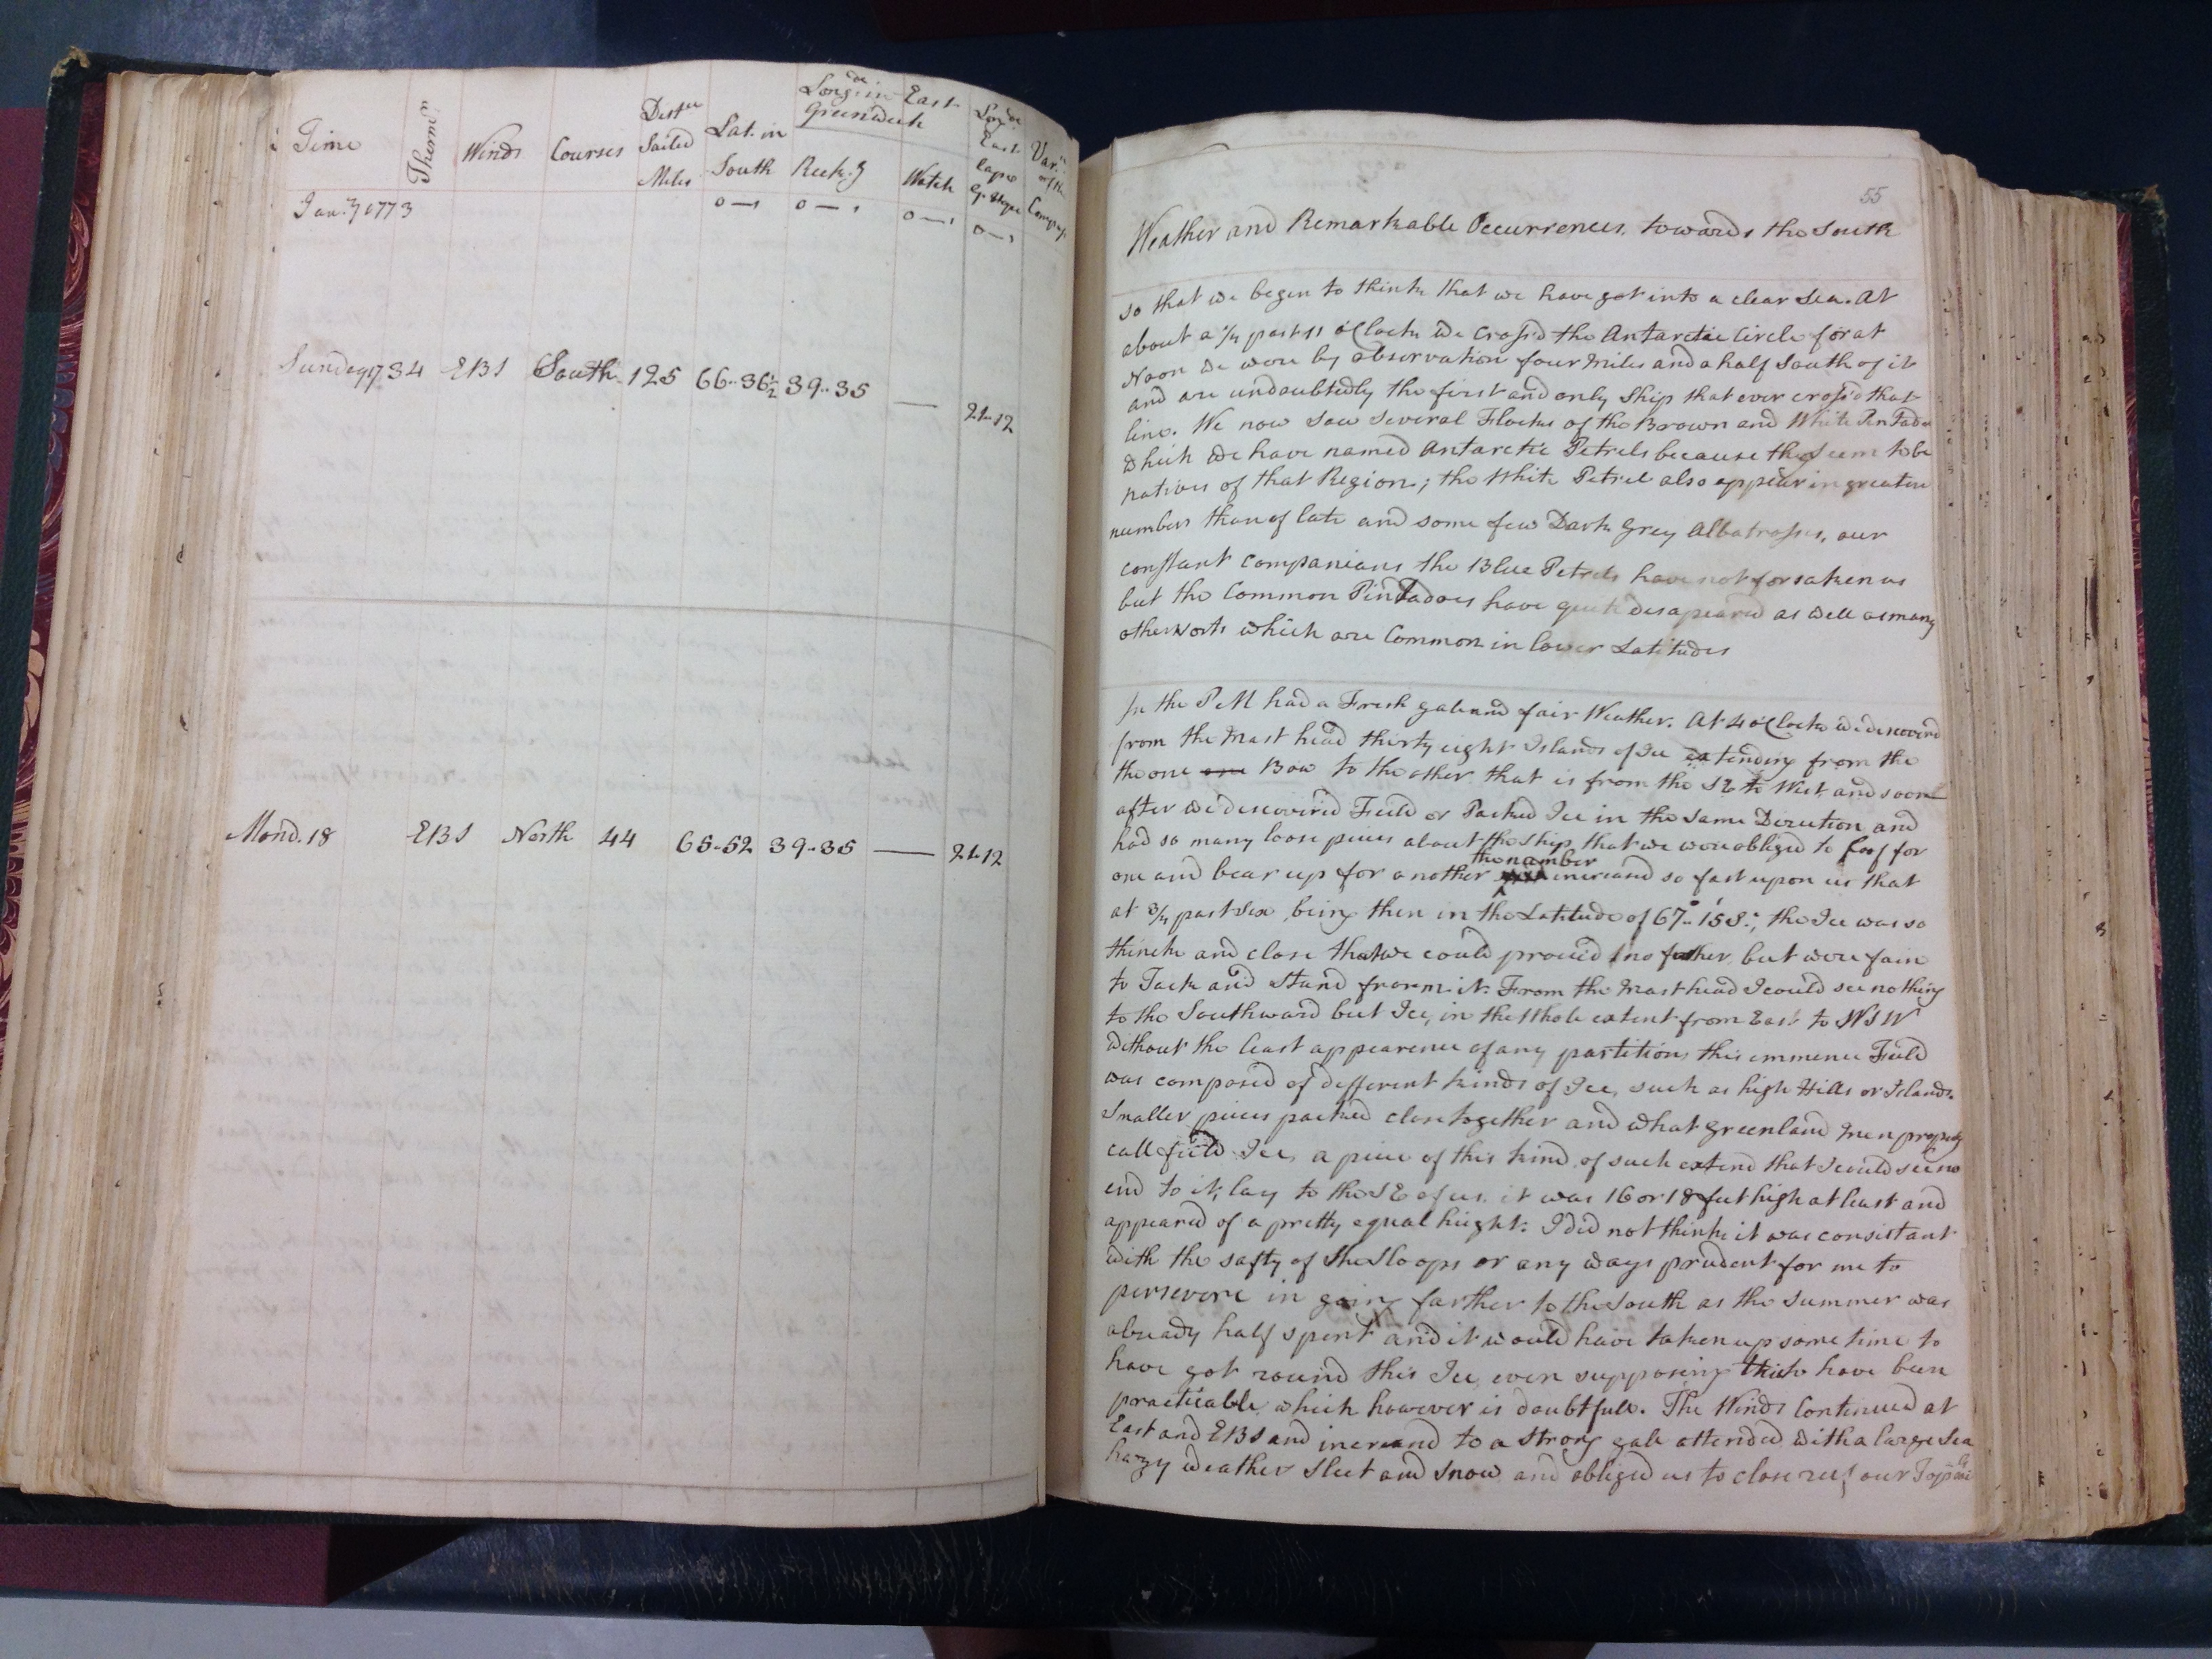 Time Therm.r Winds Courses Dist.ce Sailed Miles Lat. in South Longde in East Greenwich Reck.g Watch Longde East Cape G. Hope Var.n of the Compass
Jan.ry 1773
Sunday 17 34 EBS South 125 66..36½ 39..35 — 21..12
Mond. 18 EBS North 44 65..52 39..35 — 21..12
55
Weather and Remarkable Occurrences, towards the South
so that we begen to think that we have got into a clear Sea. At
about a ¼ past 11 o'Clock we cross'd the Antarctic Circle for at
Noon we were by observation four Miles and a half South of it
and are undoubtedly the first and only Ship that ever cross'd that
line. We now saw several Flocks of the Brown and White Pentadoes
which we have named Antarctic Petrels because they seem to be
natives of that Region; the White Petrels also appear in greater
numbers than of late and some few Dark Grey Albatrosses, our
constant companions the Blue Petrels have not forsaken us
but the Common Pintadoes have quite disapeared as well as many
other sorts which are Common in lower Latitudes
In the PM had a Fresh gale and fair Weather. At 4 o'Clock we discoverd
from the Mast head thirty eight Islands of Ice extending from the
the one one Bow to the other, that is from the SE to West, and soon
after we discovered Field or Packed Ice in the same Direction and
had so many loose pieces about the Ship that we were obliged to loof for
one and bear up for another the number increased so fast upon us that
at ¾ past Six, being then in the Latitude of 67°.. 15' S.; the Ice was so
thick and close that we could proceed no farther but were fain
to Tack and Stand from it. From the mast head I could see nothing
to the Southward but Ice, in the Whole extent from East to WSW
without the least appearence of any partition, this immence Field
was composed of different kinds of Ice, such as high Hills or Islands,
Smaller pieces packed close together and what Greenland men properly
call field Ice, a piece of this kind, of such extend that I could see no
end to it, lay to the SE of us. it was 16 or 18 feet high at least and
appeared of a pretty equal height. I did not think it was consistant
with the safty of the Sloops or any ways prudent for me to
persevere in going farther to the South as the summer was
already half spent and it would have taken up some time to
have got round this Ice, even supposing this to have been
practicable, which however is doubtfull. The Winds Continued at
East and EBS and increased to a strong gale attended with a large Sea
hazy weather Sleet and Snow and obliged us to close reef our Top sails